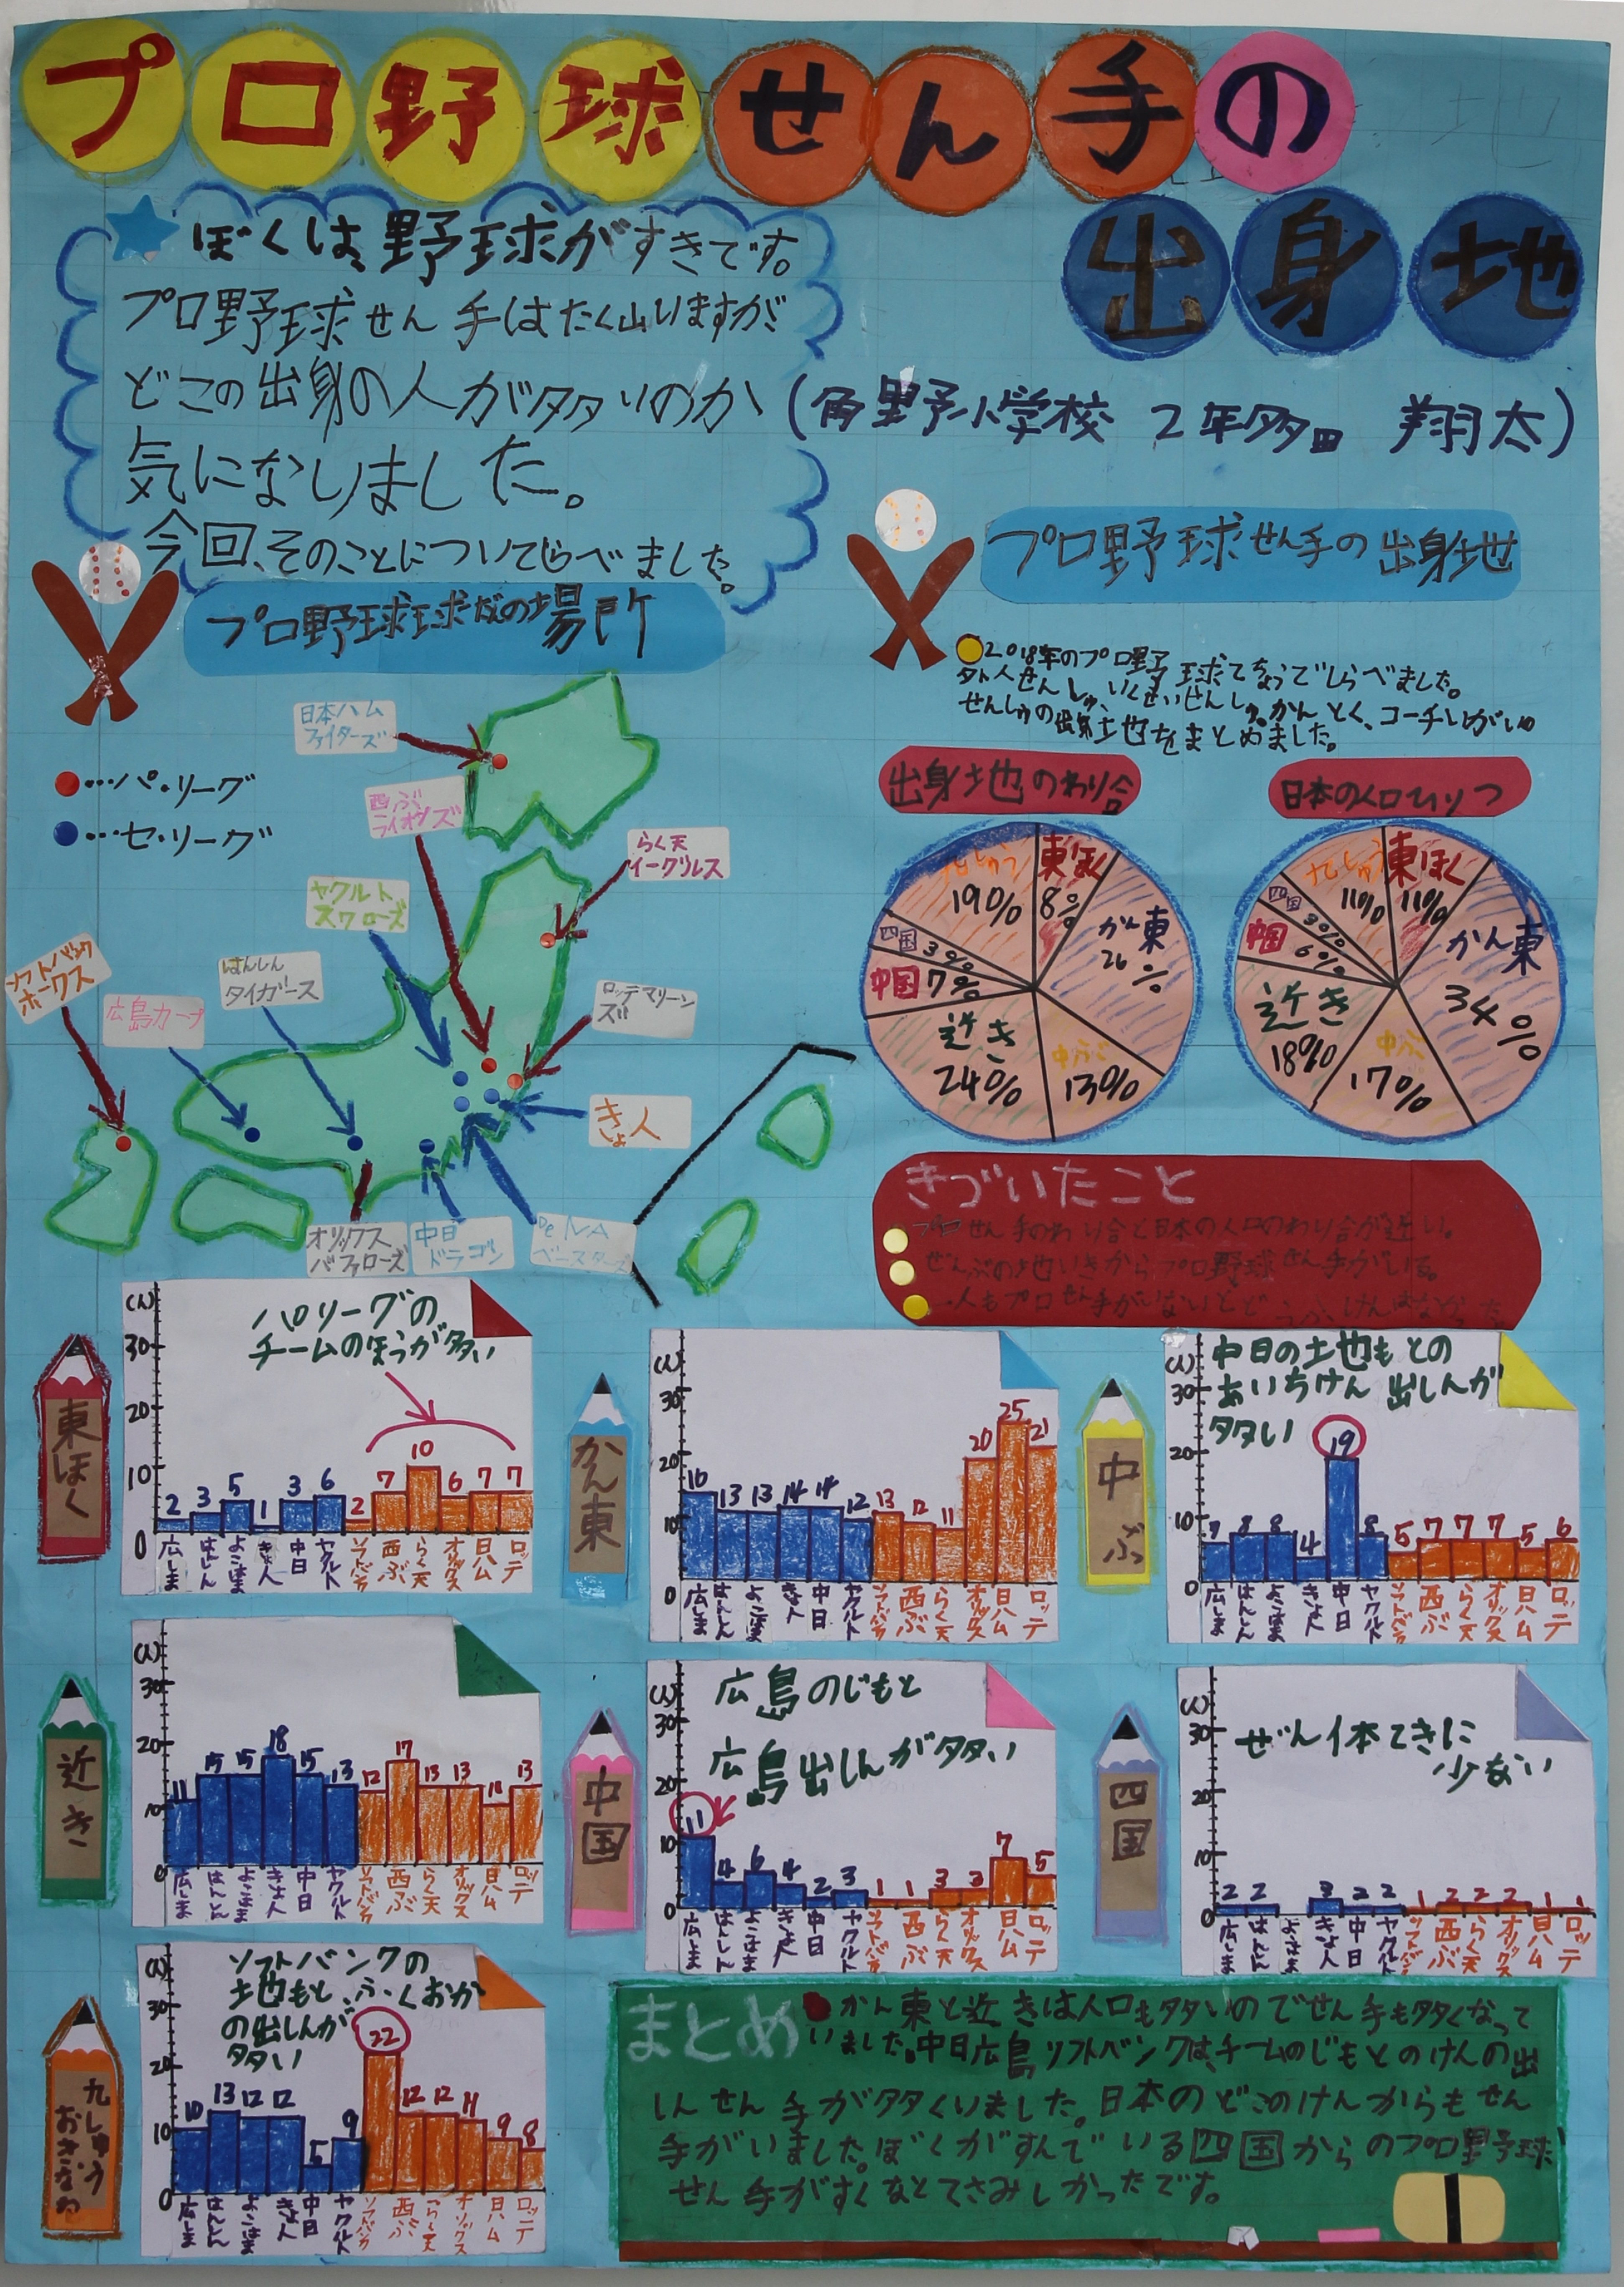 プロ野球せん手の
出身地
ぼくは、野球がすきです。
プロ野球せん手はたく山いますが
どこの出身の人が多いのか
気になりました。
今回、そのことについてしらべました。
(角野小学校 2年 多田 翔太)
プロ野球球だんの場所
●…パ・リーグ
●…セ・リーグ
日本ハム
ファイターズ
西ぶ
ライオンズ
らく天
イーグルス
ヤクルト
スワローズ
ソフトバンク
ホークス
広島カープ
はんしん
タイガース
ロッテマリーン
ズ
きょ人
オリックス
バファローズ
中日
ドラゴン
DeNA
ベースターズ
プロ野球せん手の出身地
2018年のプロ野球てちょうでしらべました。
外人せんしゅ、いくせいせんしゅ、かんとく、コーチいがいの
せんしゅの出身土地をまとめました。
出身地のわり合
九しゅう
19%
東ほく
8%
かん東
26%
中ぶ
13%
近き
24%
中国 7%
四国
3%
日本の人口ひりつ
九しゅう
11%
東ほく
11%
かん東
34%
中ぶ
17%
近き
18%
中国
6%
四国
3%
きづいたこと
プロせん手のわり合と日本の人口のわり合が近い。
ぜんぶの地いきからプロ野球せん手がいる。
一人もプロせん手がいないとどうふけんはなかった
東ほく
(人)
30
20
10
0
パリーグの
チームのほうが多い
2 3 5 1 3 6 2 7 10 6 7 7
広しま はんしん よこはま きょ人 中日 ヤクルト ソフトバンク 西ぶ らく天 オリックス 日ハム ロッテ
かん東
(人)
30
20
10
0
16 13 13 14 14 12 13 12 11 20 25 21
広しま はんしん よこはま きょ人 中日 ヤクルト ソフトバンク 西ぶ らく天 オリックス 日ハム ロッテ
中ぶ
(人)
30
20
10
0
中日の土地もとの
あいちけん出しんが
多い
7 8 8 4 19 8 5 7 7 7 5 6
広しま はんしん よこはま きょ人 中日 ヤクルト ソフトバンク 西ぶ らく天 オリックス 日ハム ロッテ
近き
(人)
30
20
10
0
11 15 15 18 15 13 12 17 13 13 11 13
広しま はんしん よこはま きょ人 中日 ヤクルト ソフトバンク 西ぶ らく天 オリックス 日ハム ロッテ
中国
(人)
30
20
10
0
広島のじもと
広島出しんが多い
11 4 6 4 2 3 1 1 3 2 7 5
広しま はんしん よこはま きょ人 中日 ヤクルト ソフトバンク 西ぶ らく天 オリックス 日ハム ロッテ
四国
(人)
30
20
10
0
ぜん体てきに
少ない
2 2 3 2 2 1 2 2 2 1 1
広しま はんしん よこはま きょ人 中日 ヤクルト ソフトバンク 西ぶ らく天 オリックス 日ハム ロッテ
九しゅう
おきなわ
(人)
30
20
10
0
ソフトバンクの
土地もと、ふくおか
の出しんが
多い
10 13 12 12 5 9 22 12 12 11 9 8
広しま はんしん よこはま きょ人 中日 ヤクルト ソフトバンク 西ぶ らく天 オリックス 日ハム ロッテ
まとめ
かん東と近きは人口も多いのでせん手も多くなって
いました。中日広島ソフトバンクは、チームのじもとのけんの出
しんせん手が多くいました。日本のどこのけんからもせん
手がいました。ぼくがすんでいる四国からのプロ野球
せん手がすくなくてさみしかったです。